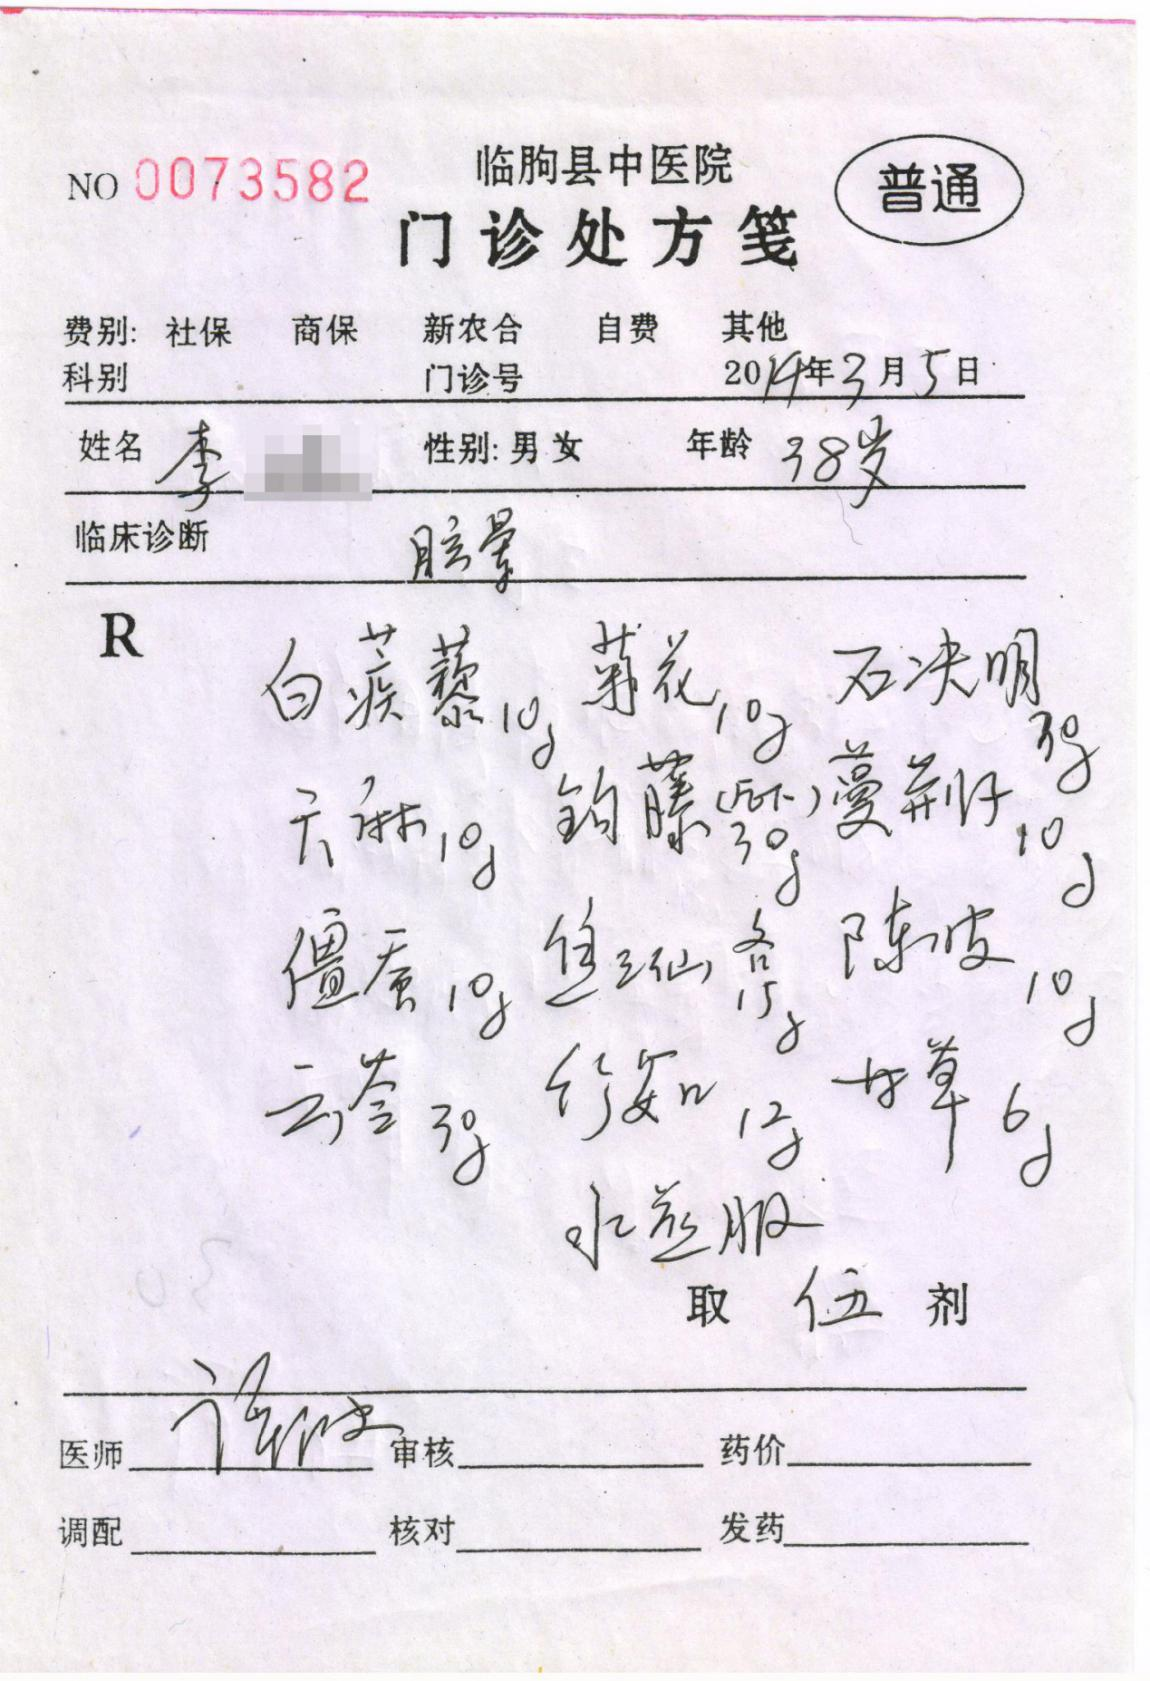 临朐县中医院
NO 0073582
普通
门诊处方笺
费别: 社保 商保 新农合 自费 其他
科别 门诊号 2014年3月5日
姓名 李 性别: 男 女 年龄 38岁
临床诊断 眩晕
R
白蒺藜10g 菊花10g 石决明30g
天麻10g 钩藤(后下)30g 蔓荆子10g
僵蚕10g 焦三仙各15g 陈皮10g
云苓30g 竹茹12g 甘草6g
水煎服
取 伍 剂
医师 审核 药价
调配 核对 发药